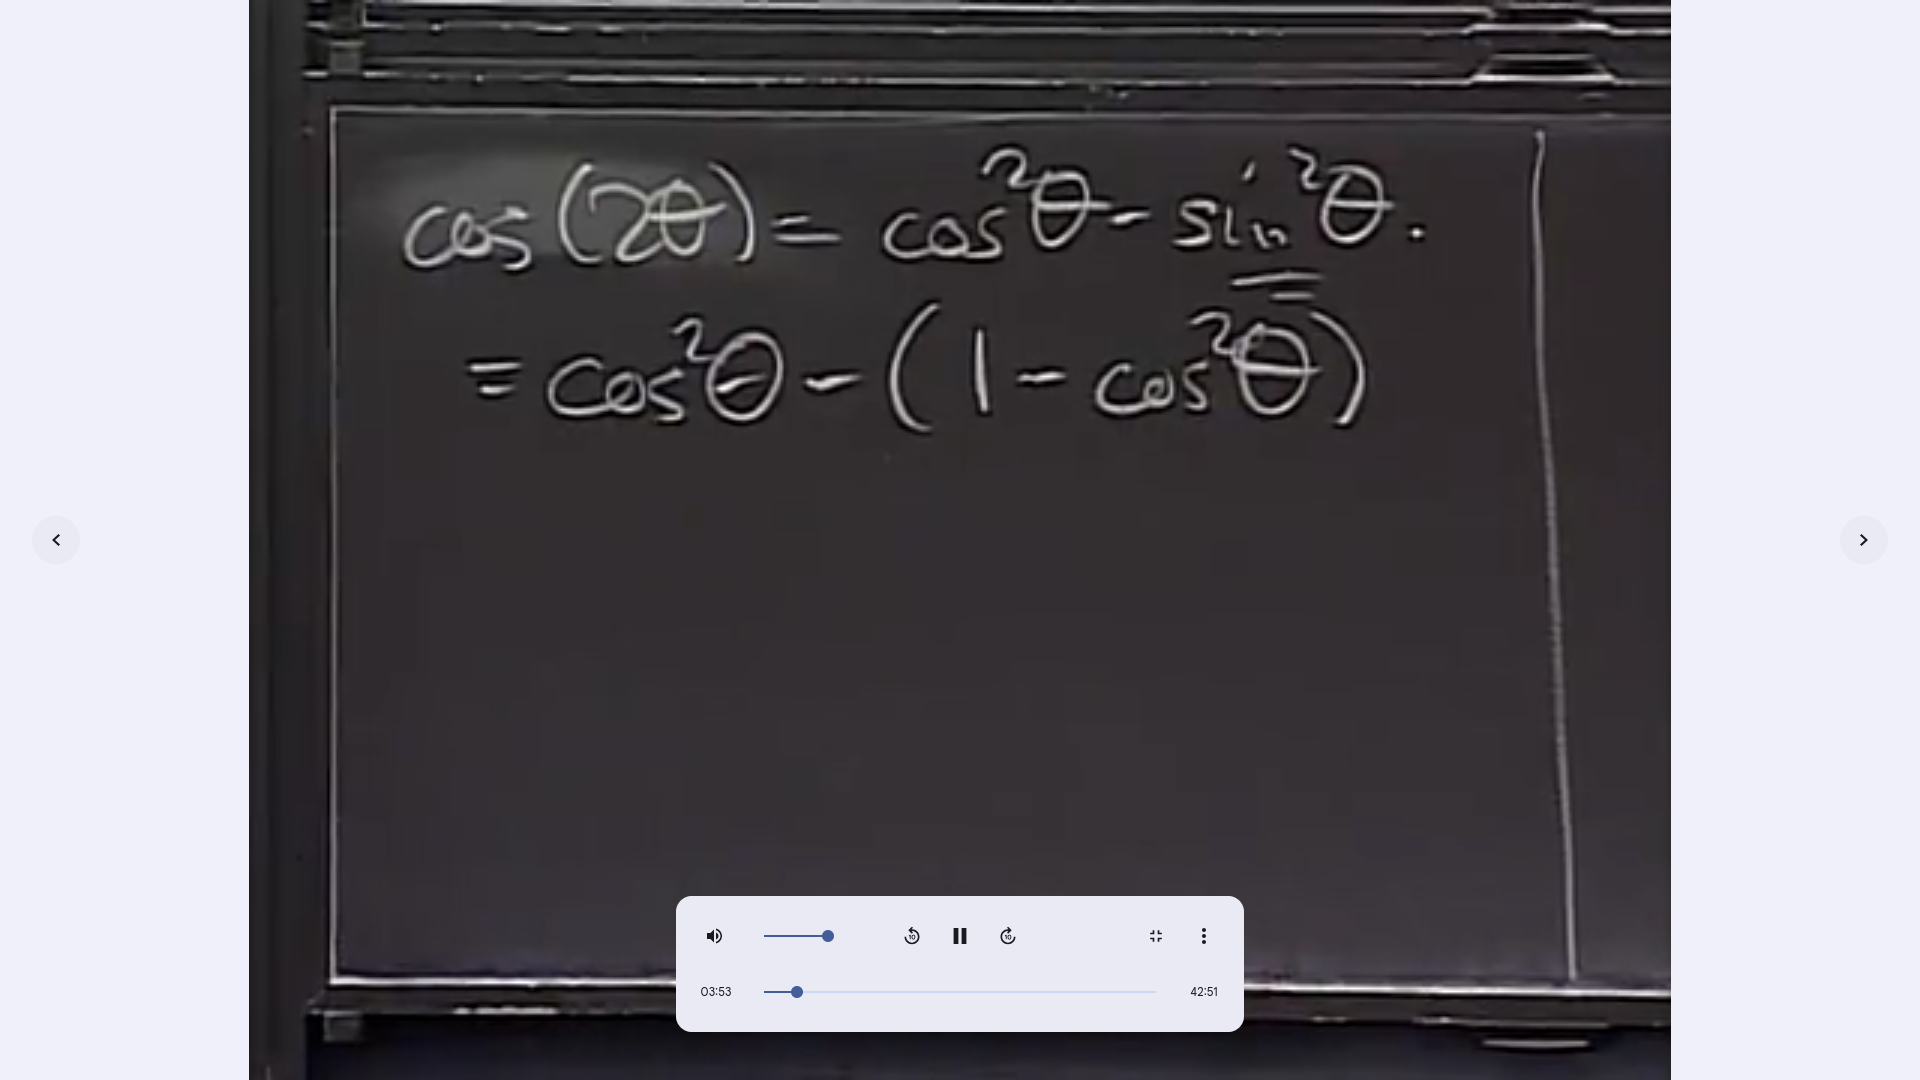 cos(2θ) = cos²θ - sin²θ.
= cos²θ - (1 - cos²θ)
10 10
03:53 42:51